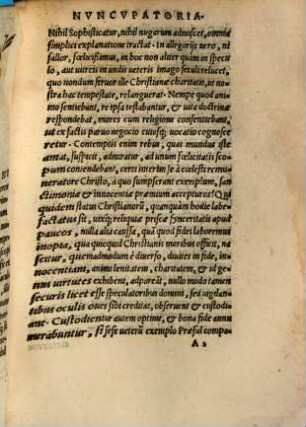 NVNCVPATORIA.
Nihil Sophisticatur, nihil nugarum admiscet, omnia
simplici explanatione tractat. In allegorijs uero, ni
fallor, fœlicißimus, in hoc non aliter quàm in specu
lo, aut uitreis in undis ueteris imago seculi relucet,
quo nondum feruor ille Christianæ charitatis, ut no
stra hac tempestate, relanguerat. Nempe quod ani
mo sentiebant, re ipsa testabantur, & uita doctrinæ
respondebat, mores cum religione consentiebant,
ut ex factis paruo negocio cuiusq; uocatio cognosce
retur. Contemptis enim rebus, quas mundus iste
amat, suspicit, admiratur, ad unum fœlicitatis sco
pum contendebant, certi interim se à cœlesti remu
neratore Christo, à quo sumpserant exemplum, san
ctimoniæ & innocentiæ præmium accepturos. Qui
quidem status Christianorũ, quanquam hodie labe
factatus sit, uixq; reliquiæ priscæ synceritatis apud
paucos, nulla alia caussa, quã quod fidei laboremus
inopia, qua quicquid Christianis moribus officit, na
scitur, quemadmodum è diuerso, diuites in fide, in
nocentiam, animi lenitatem, charitatem, & id ge-
nus uirtutes exhibent, adparẽt, nullo modo tamen
securis licet esse speculatoribus domini, sed uigilan
tibus oculis oues sibi creditas, obseruent & custodi
ant. Custodientur autem optime, & bona fide annu
merabuntur, si sese ueterũ exemplo Præsul compo
A 2